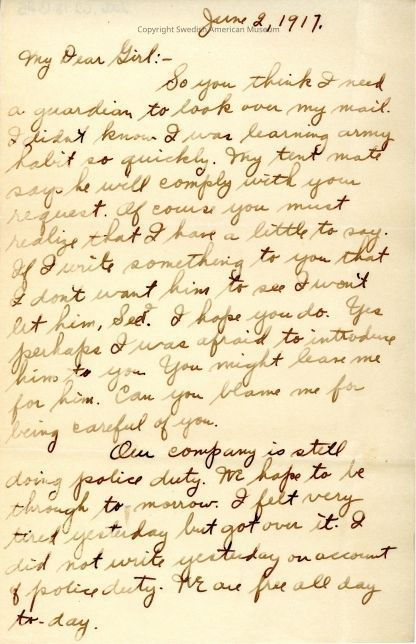 June 2, 1917.
Copyright Swedish American Museum
My Dear Girl:-
So you think I need
a guardian to look over my mail.
I didn't know I was learning army
habit so quickly. My tent mate
says he will comply with your
request. Of course you must
realize that I have a little to say.
If I write something to you that
I don't want him to see I won't
let him, See? I hope you do. Yes
perhaps I was afraid to introduce
him to you. You might leave me
for him. Can you blame me for
being careful of you.
Our company is still
doing police duty. We hope to be
through to-morrow. I felt very
tired yesterday but got over it. I
did not write yesterday on account
of police duty. We are free all day
to-day.